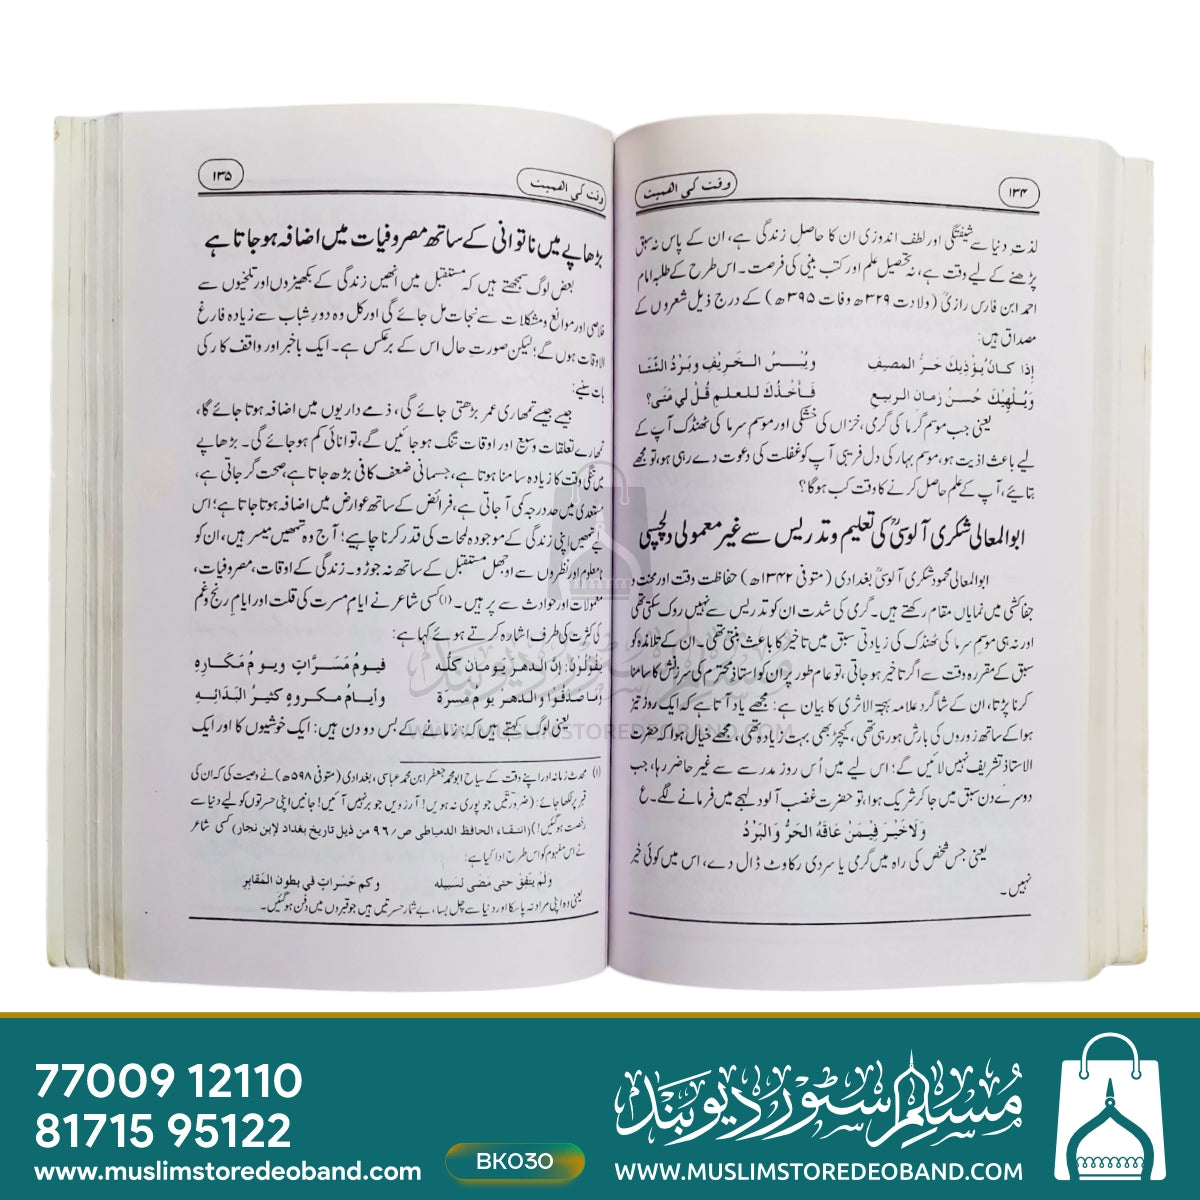 ۱۳۴
وقت کی اہمیت
لذتِ دنیا سے شیفتگی اور لطف اندوزی ان کا حاصلِ زندگی ہے، ان کے پاس نہ سبق
پڑھنے کے لیے وقت ہے، نہ تحصیلِ علم اور کتب بینی کی فرصت۔ اس طرح کے طلبہ امام
احمد ابن فارس رازیؒ (ولادت ۳۲۹ھ وفات ۳۹۵ھ) کے درج ذیل شعروں کے
مصداق ہیں:
إذا كانَ يُؤْذِيكَ حَرُّ المصيفِ ويُبْسُ الخَرِيفِ وبَرْدُ الشِّتَا
ويُلْهِيكَ حُسنُ زمانِ الربيعِ فَأخْذُكَ للعلمِ قُلْ لي مَتٰى؟
یعنی جب موسم گرما کی گرمی، خزاں کی خشکی اور موسم سرما کی ٹھنڈک آپ کے
لیے باعث اذیت ہو، موسم بہار کی دل فریبی آپ کو غفلت کی دعوت دے رہی ہو، تو مجھے
بتائیے، آپ کے علم حاصل کرنے کا وقت کب ہوگا؟
ابوالمعالی شکری آلوسیؒ کی تعلیم و تدریس سے غیر معمولی دلچسپی
ابوالمعالی محمود شکری آلوسیؒ بغدادی (متوفی ۱۳۴۲ھ) حفاظتِ وقت اور محنت و
جفاکشی میں نمایاں مقام رکھتے ہیں۔ گرمی کی شدت ان کو تدریس سے نہیں روک سکتی تھی
اور نہ ہی موسم سرما کی ٹھنڈک کی زیادتی سبق میں تاخیر کا باعث بنتی تھی۔ ان کے تلامذہ کو
سبق کے مقررہ وقت سے اگر تاخیر ہو جاتی، تو عام طور پر ان کو استاذ محترم کی سرزنش کا سامنا
کرنا پڑتا، ان کے شاگرد علامہ بہجۃ الاثری کا بیان ہے: مجھے یاد آتا ہے کہ ایک روز تیز
ہوا کے ساتھ زوروں کی بارش ہو رہی تھی، کیچڑ بھی بہت زیادہ تھی، مجھے خیال ہوا کہ حضرت
الاستاذ تشریف نہیں لائیں گے؛ اس لیے میں اُس روز مدرسے سے غیر حاضر رہا، جب
دوسرے دن سبق میں جا کر شریک ہوا، تو حضرت غضب آلود لہجے میں فرمانے لگے۔ ع
وَلَا خَيْرَ فِيْمَنْ عَاقَهُ الحَرُّ وَالبَرْدُ
یعنی جس شخص کی راہ میں گرمی یا سردی رکاوٹ ڈال دے، اس میں کوئی خیر
نہیں۔
وقت کی اہمیت
۱۳۵
بڑھاپے میں ناتوانی کے ساتھ مصروفیات میں اضافہ ہو جاتا ہے
بعض لوگ سمجھتے ہیں کہ مستقبل میں انھیں زندگی کے بکھیڑوں اور تلخیوں سے
خلاصی اور موانع و مشکلات سے نجات مل جائے گی اور کل وہ دورِ شباب سے زیادہ فارغ
الاوقات ہوں گے؛ لیکن صورتِ حال اس کے برعکس ہے۔ ایک باخبر اور واقف کار کی
بات سنیے:
جیسے جیسے تمھاری عمر بڑھتی جائے گی، ذمے داریوں میں اضافہ ہوتا جائے گا،
تمھارے تعلقات وسیع اور اوقات تنگ ہو جائیں گے، توانائی کم ہو جائے گی۔ بڑھاپے
میں تنگیِ وقت کا زیادہ سامنا ہوتا ہے، جسمانی ضعف کافی بڑھ جاتا ہے، صحت گر جاتی ہے،
مستعدی میں حد درجہ کمی آ جاتی ہے، فرائض کے ساتھ عوارض میں اضافہ ہوتا جاتا ہے؛ اس
لیے تمھیں اپنی زندگی کے موجودہ لمحات کی قدر کرنا چاہیے؛ آج وہ تمھیں میسر ہیں، ان کو
نامعلوم اور نظروں سے اوجھل مستقبل کے ساتھ نہ جوڑو۔ زندگی کے اوقات، مصروفیات،
معمولات اور حوادث سے پر ہیں۔(۱) کسی شاعر نے ایامِ مسرت کی قلت اور ایامِ رنج و غم
کی کثرت کی طرف اشارہ کرتے ہوئے کہا ہے:
يقولونَ: إنّ الدهرَ يومانِ كلُّه فيومُ مَسَرَّاتٍ ويومُ مَكَارِهِ
وما صَدَقُوا والدهر يومُ مَسرّةٍ وأيامُ مكروهٍ كثيرُ البَدائِهِ
یعنی لوگ کہتے ہیں کہ زمانے کے بس دو دن ہیں: ایک خوشیوں کا اور ایک
(۱) محدث زمانہ اور اپنے وقت کے سیاح ابو محمد جعفر ابن محمد عباسی، بغدادی (متوفی ۵۹۸ھ) نے وصیت کی کہ ان کی
قبر پر لکھا جائے: (ضرورتیں جو پوری نہ ہویں! آرزویں جو بر نہیں آئیں! جانیں اپنی حسرتوں کو لیے دنیا سے
رخصت ہو گئیں!) (انتقاء الحافظ الدمیاطی ص/۹۶ من ذیل تاریخ بغداد لابن نجار) کسی شاعر
نے اس مفہوم کو اس طرح ادا کیا ہے:
ولم يتفق حتى مضى لسبيله وكم حسرات في بطون المقابر
یعنی وہ اپنی مراد نہ پا سکا اور دنیا سے چل بسا، بے شمار حسرتیں ہیں جو قبروں میں دفن ہو گئیں۔
مسلم سٹور دیوبند
WWW.MUSLIMSTOREDEOBAND.COM
77009 12110
81715 95122
www.muslimstoredeoband.com
BK030
مسلم سٹور دیوبند
WWW.MUSLIMSTOREDEOBAND.COM